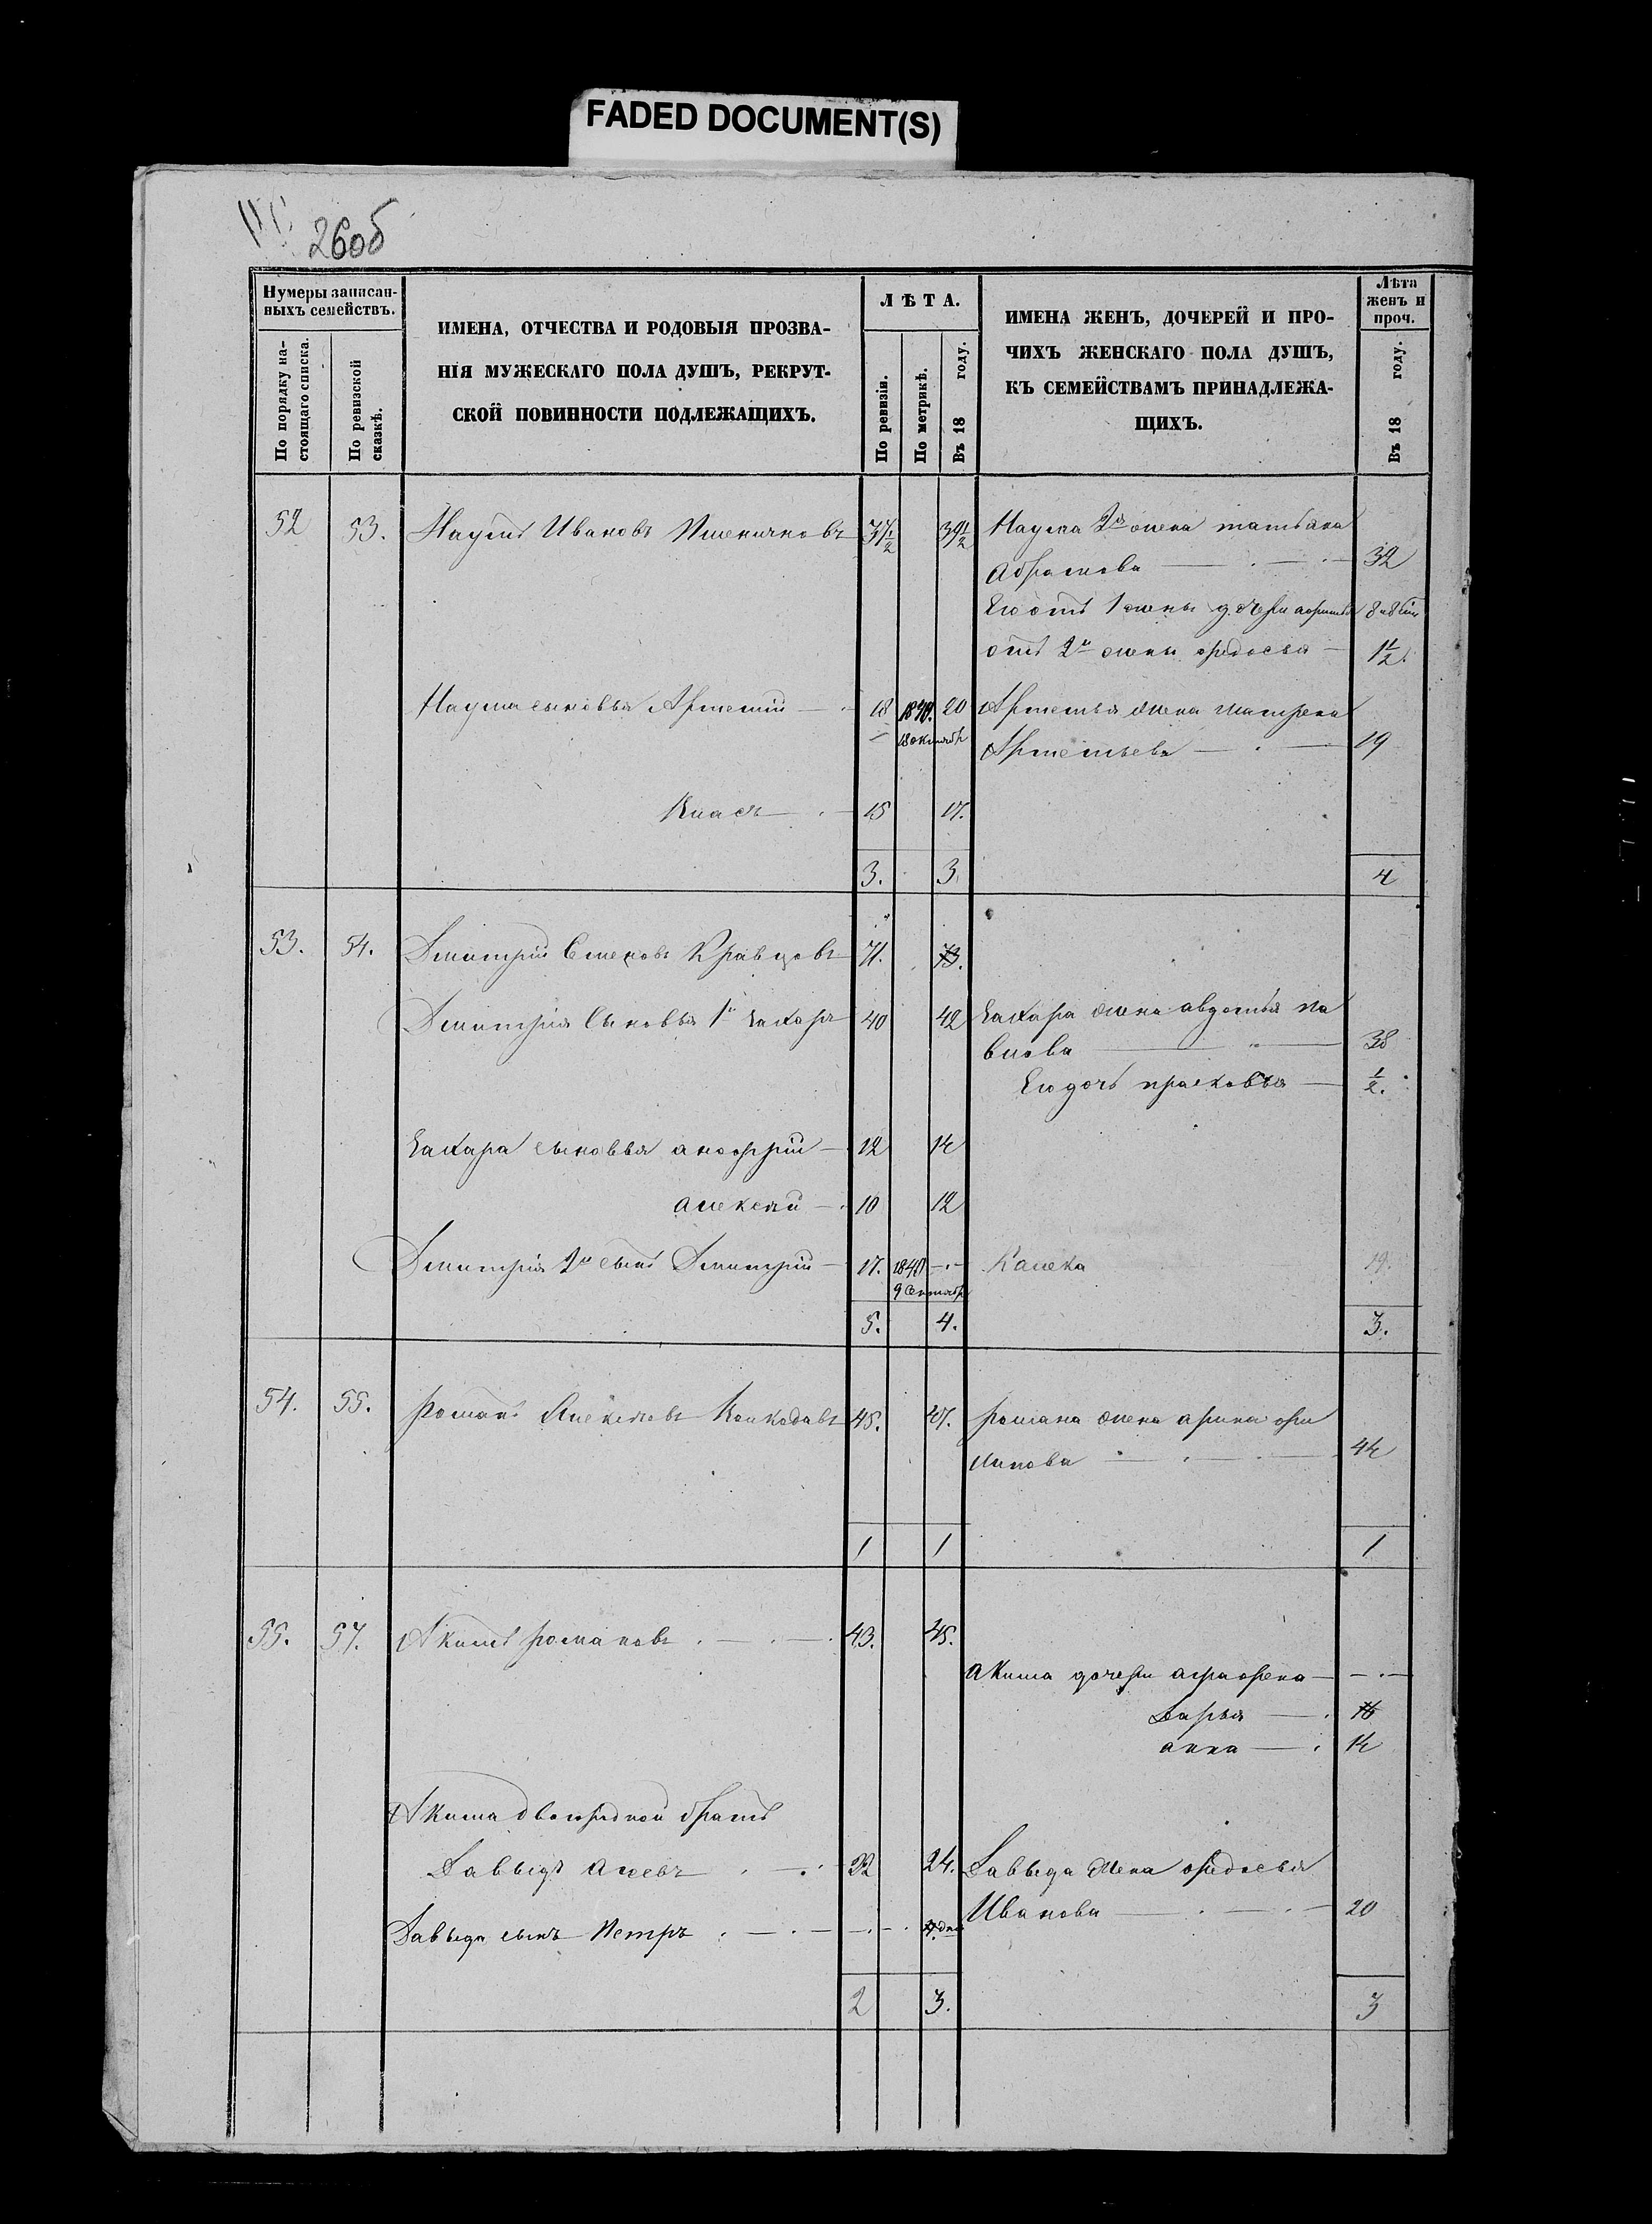 FADED DOCUMENT(S)
26об
Нумеры записан-
ныхъ семействъ.
По порядку на-
стоящаго списка.
По ревизской
сказкѣ.
ИМЕНА, ОТЧЕСТВА И РОДОВЫЯ ПРОЗВА-
НІЯ МУЖЕСКАГО ПОЛА ДУШЪ, РЕКРУТ-
СКОЙ ПОВИННОСТИ ПОДЛЕЖАЩИХЪ.
ЛѢТА.
По ревизіи.
По метрикѣ.
Въ 18 году.
ИМЕНА ЖЕНЪ, ДОЧЕРЕЙ И ПРО-
ЧИХЪ ЖЕНСКАГО ПОЛА ДУШЪ,
КЪ СЕМЕЙСТВАМЪ ПРИНАДЛЕЖА-
ЩИХЪ.
Лѣта
женъ и
проч.
Въ 18 году.
52 53. Наумъ Ивановъ Пшеничновъ 37 1/2 39 1/2 Наума 2я жена татьяна
абрамова 32
Его отъ 1 жены дочери
отъ 2й жены федосья 1 1/2.
Наума сыновья Артемий 18 20 Артемья жена матрена
18 октябр Артемьева 19
Власъ 15 17.
3. 3 4
53. 54. Дмитрій Семеновъ Кравцовъ 71. 73.
Дмитрія Сыновья 1й Захаръ 40 42 Захара жена авдотья па
влова 38
Его дочь прасковья 1/2.
Захара сыновья анофрій 12 14
алексѣй 10 12
Дмитрія 2й сынъ Дмитрій 17. 1840 Калека 19.
9 Сентябр
5. 4. 3.
54. 55. Романъ Алексѣевъ 45. 47. романа жена арина фи
липова 44
1 1 1
55. 57. Акимъ романовъ 43. 45.
акима дочери аграфена
Дарья 16
анна 14
Акима двоюродной братъ
Давыдъ 22 24. Давыда жена федосья
Иванова 20
Давыда сынъ Петръ
2 3. 3